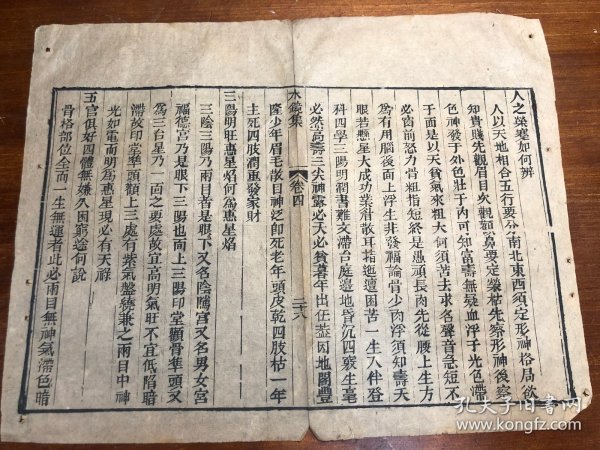 人之榮蹇如何辨
人以天地相合五行要分南北東西須定形神格局欲
知貴賤先觀眉目次觀額鼻要定榮枯先察形神後察
色神發于外色壯于內可知富壽無疑血浮于光色滯
于面是以天貧氣來粗大何須苦去求名聲音急短不
必窗前怒力骨粗指短終是愚頑長肉先從腰上生方
為有用腦後面上浮生非發福論骨少肉浮須知壽夭
眼若懸星大成功業滑散耳指迍邅困苦一生入伴登
科四學三陽明潤書難文滯台庭邊地昏沉四竅生毫
必然高壽三尖神露必夭必貧暮年出仕蓋因地閣豐
隆少年眉毛散目神泛即死老年頭皮乾四肢枯一年
主死四肢潤重發家財
三陽明旺惠星焰何為惠星焰
三陰三陽乃兩目者是眼下又名陰騭宮又名男女宮
福德宮乃是眼下三陽也面上三陽印堂顴骨準頭又
為三台星乃一面之要處故宜高明氣旺不宜低陷暗
滯故印堂準頭顴上三處有紫氣盤繞兼之兩目中神
光如電而明為惠星現必有天祿
五官俱好四體無嫌久困窮途何說
骨格部位全而一生無運者此必兩目無神氣滯色暗
水鏡集
卷四
二十八
孔夫子旧书网
www.kongfz.com